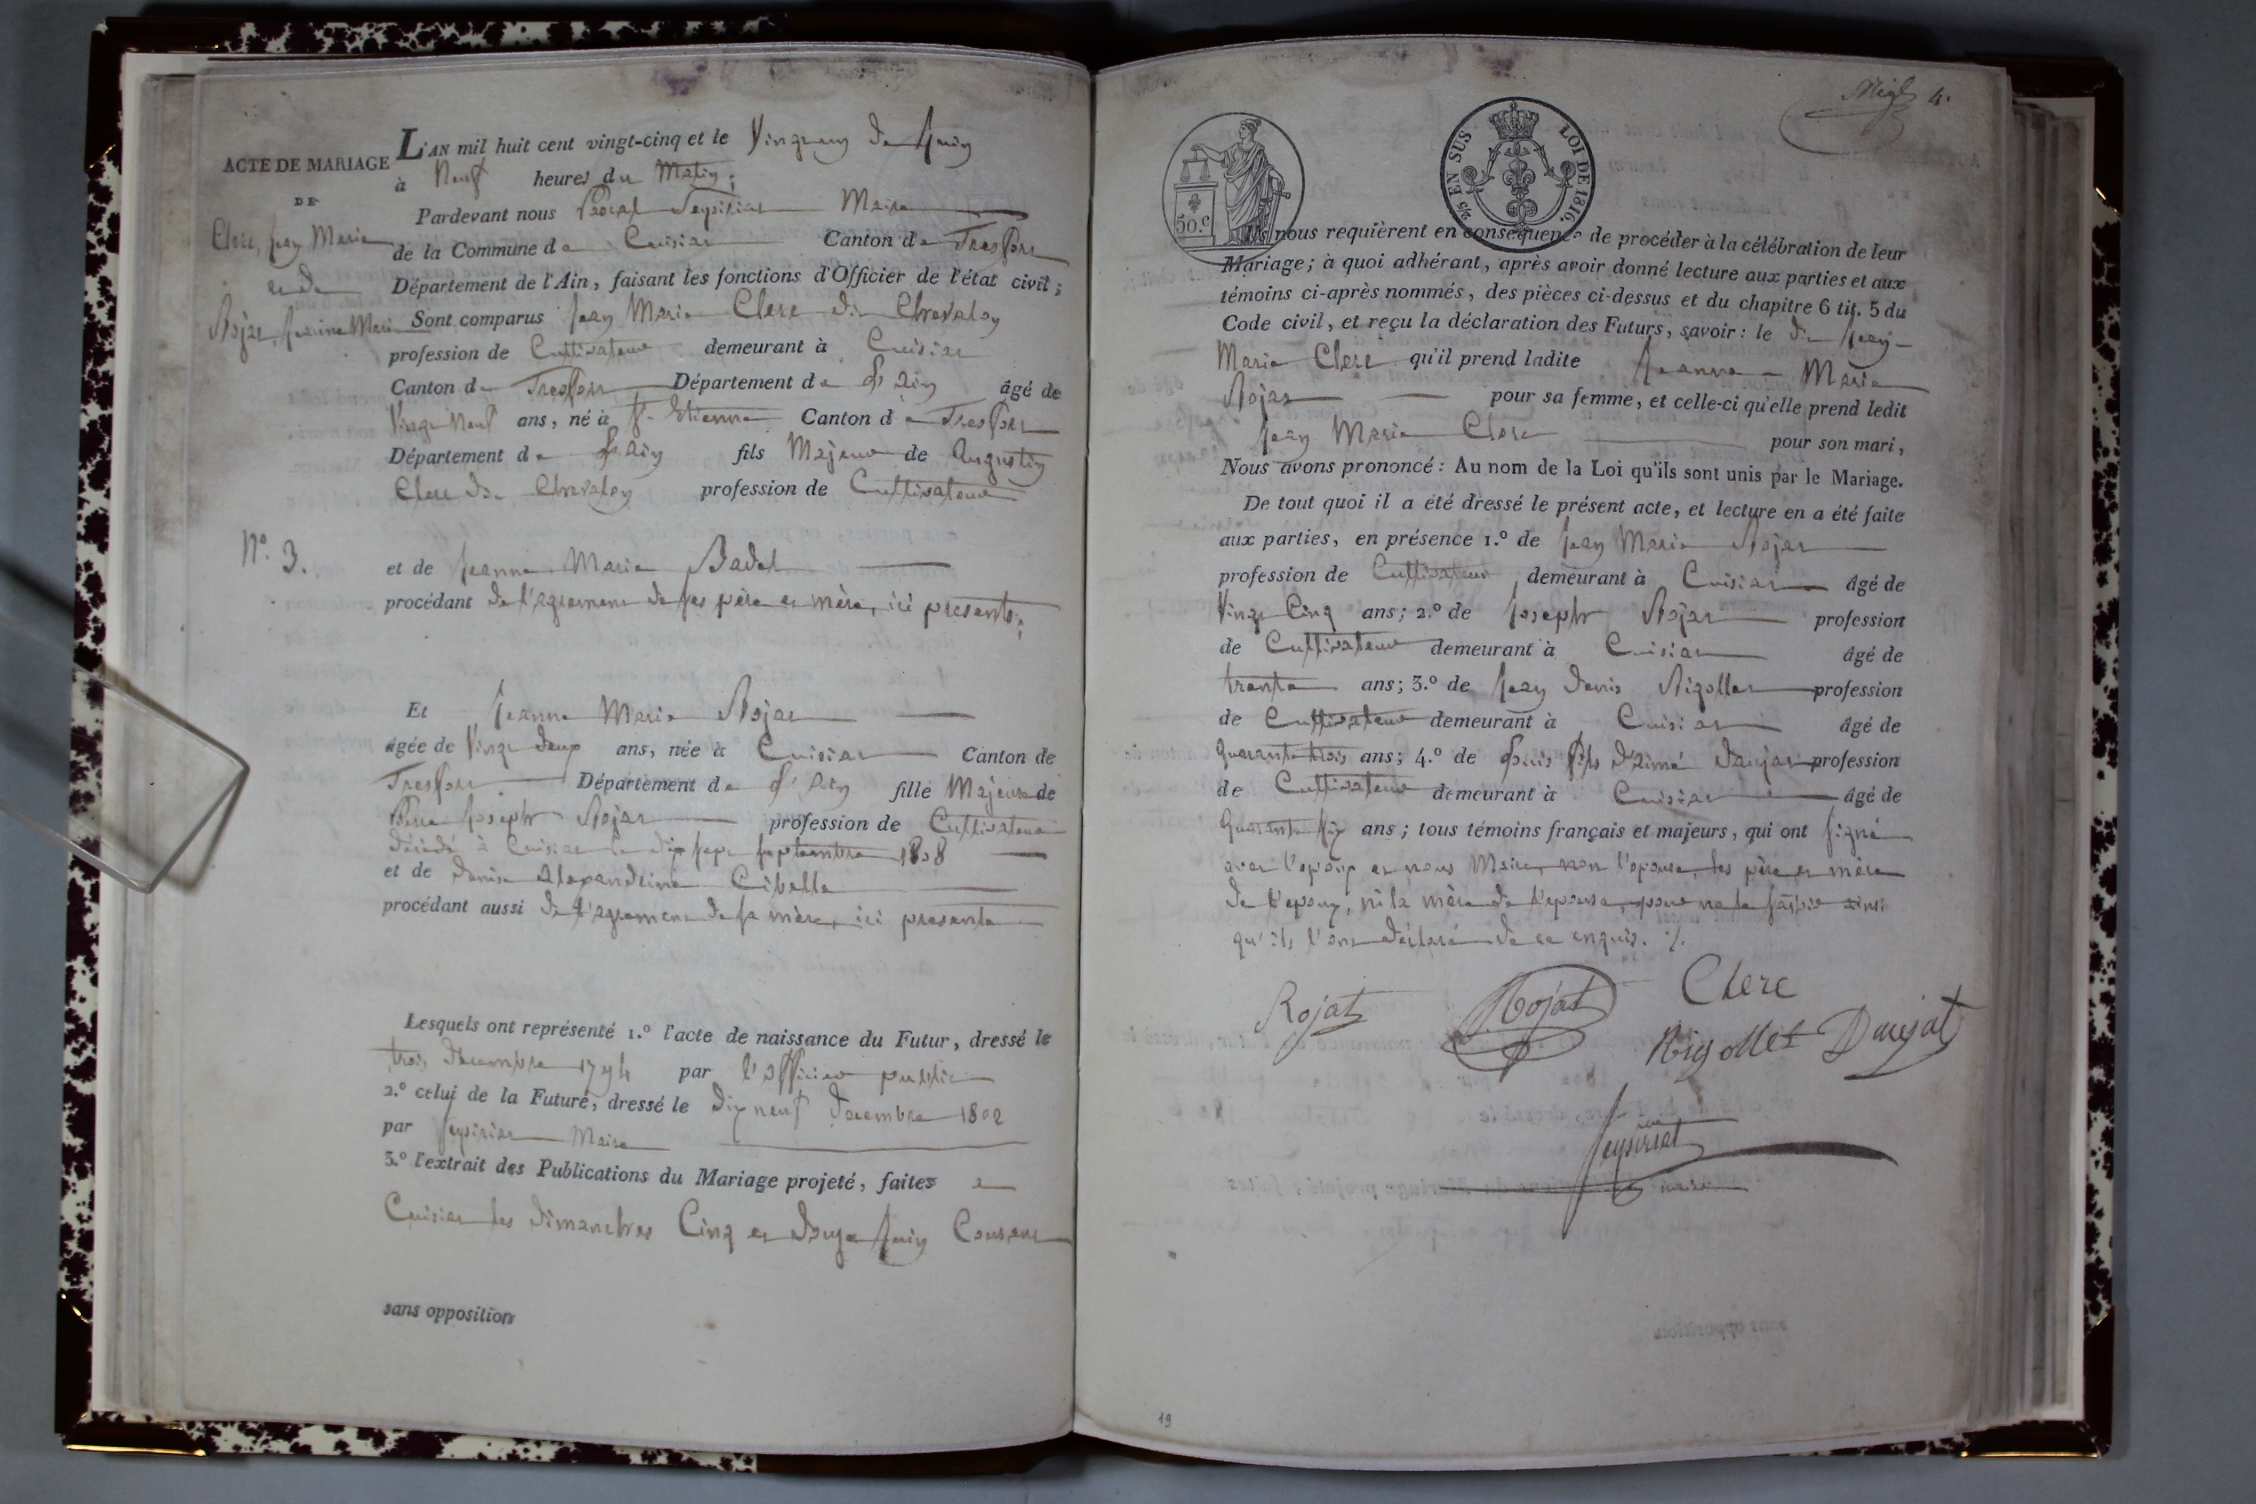 ACTE DE MARIAGE
DE
Clerc, Jean Marie
et de
Rojat, Jeanne Marie
N.º 3.
L'AN mil huit cent vingt-cinq et le Juin
à Neuf heures du Matin;
Pardevant nous Seysiriat Maire
de la Commune de Cuisiat Canton de Treffort
Département de l'Ain, faisant les fonctions d'Officier de l'état civil;
Sont comparus Jean Marie Clerc dit Chevalon
profession de Cultivateur demeurant à Cuisiat
Canton de Treffort Département de L'Ain âgé de
Vingt Neuf ans, né à St. Etienne Canton de Treffort
Département de L'Ain fils Majeur de Augustin
Clerc dit Chevalon profession de Cultivateur
et de Jeanne Marie Badet
procédant de l'agrement de ses père et mère, ici presents;
Et Jeanne Marie Rojat
âgée de Vingt deux ans, née à Cuisiat Canton de
Treffort Département de L'Ain fille Majeure de
Joseph Rojat profession de Cultivateur
décédé à Cuisiat le dix sept septembre 1808
et de Denise Alexandrine Cibelle
procédant aussi de l'agrement de sa mère, ici presente
Lesquels ont représenté 1.º l'acte de naissance du Futur, dressé le
trois décembre 1794 par l'officier public
2.º celui de la Future, dressé le dix neuf décembre 1802
par Seysiriat Maire
3.º l'extrait des Publications du Mariage projeté, faites a
Cuisiat les dimanches Cinq et douze Juin Courant
sans opposition
4.
50 C.
5/2 EN SUS LOI DE 1816.
Ils nous requièrent en conséquence de procéder à la célébration de leur
Mariage; à quoi adhérant, après avoir donné lecture aux parties et aux
témoins ci-après nommés, des pièces ci-dessus et du chapitre 6 tit. 5 du
Code civil, et reçu la déclaration des Futurs, savoir: le dit Jean-
Marie Clerc qu'il prend ladite Jeanne - Marie
Rojat pour sa femme, et celle-ci qu'elle prend ledit
Jean Marie Clerc pour son mari,
Nous avons prononcé: Au nom de la Loi qu'ils sont unis par le Mariage.
De tout quoi il a été dressé le présent acte, et lecture en a été faite
aux parties, en présence 1.º de Jean Marie Rojat
profession de Cultivateur demeurant à Cuisiat âgé de
Vingt Cinq ans; 2.º de Joseph Rojat profession
de Cultivateur demeurant à Cuisiat âgé de
trente ans; 3.º de Jean Denis Rigollet profession
de Cultivateur demeurant à Cuisiat âgé de
quarante trois ans; 4.º de Louis fils d'aimé Daujat profession
de Cultivateur demeurant à Cuisiat âgé de
quarante six ans; tous témoins français et majeurs, qui ont signé
avec l'epoux et nous Maire, non l'epouse, les père et mère
de l'epoux, ni la mère de l'epouse, pour ne le savoir ainsi
qu'ils l'ont déclaré de ce enquis. ./.
Rojat Rojat Clerc
Rigollet Daujat
Seysiriat
maire
19